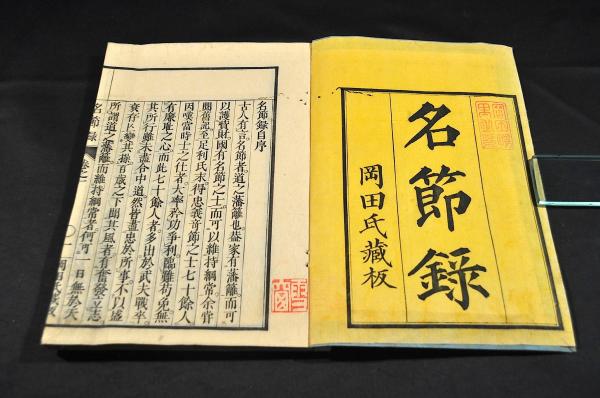 名節錄
岡田氏藏板
名節錄自序
古人有言名節者道之藩籬也蓋家有藩籬而可
以護貲財國有名節之士而可以維持綱常余嘗
閱舊記至足利氏末得忠義音節之士七十餘人
因嘆當時士之任者大率矜功爭利臨難苟免無
有廉耻之心而此七十餘人者多出於武夫戰卒
其所行雖未盡合中道然皆盡忠於所事不以盛
衰存亡變其操百歲之下聞其風者有奮發立志
所謂道之藩籬而維持綱常者何可一日無於天
名節錄 卷之一